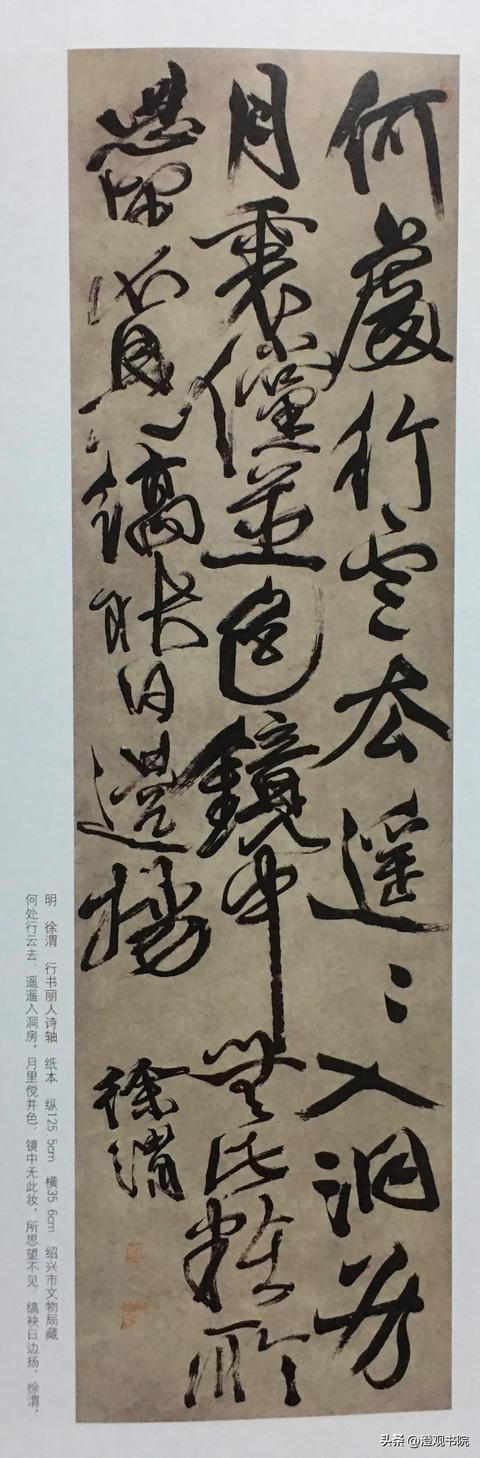 何處行雲去遥〻入洞房
月裏儻並色鏡中無此粧所
思望不見縞袂日邊揚
徐渭
明 徐渭 行书丽人诗轴 纸本 纵125.5cm 横35.6cm 绍兴市文物局藏
何处行云去，遥遥入洞房，月里傥并色，镜中无此妆，所思望不见，缟袂日边扬，徐渭。
头条 @澄观书院